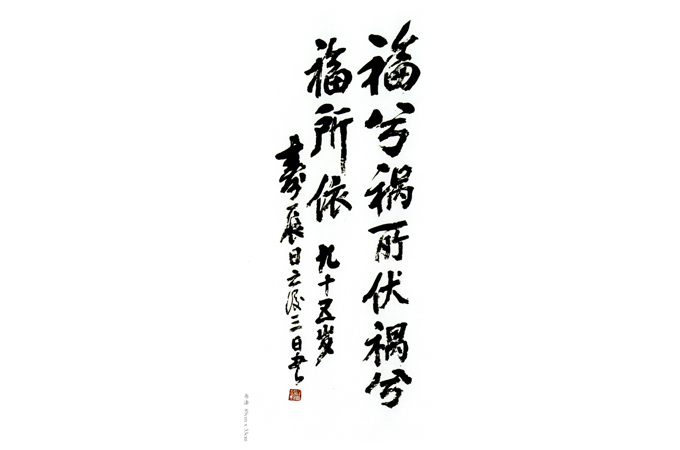 福兮祸所伏祸兮
福所依 九十五岁
寿辰日之后三日书